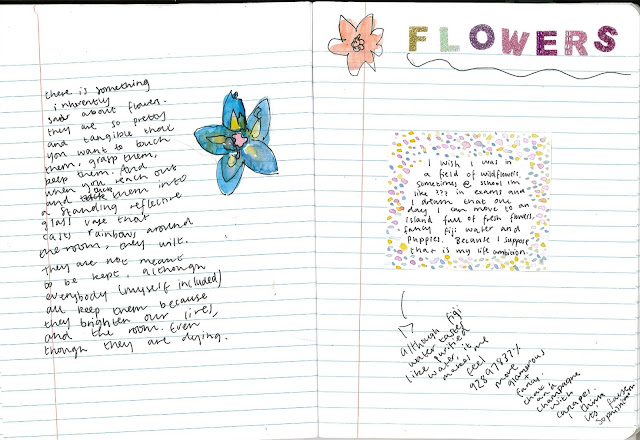 there is something
inherently
sad about flowers.
they are so pretty
and tangible that
you want to touch
them, grasp them,
keep them. And
when you reach out
and place them into
a standing reflective
glass vase that
casts rainbows around
the room, they wilt.
They are not meant
to be kept, although
everybody (myself included)
all keep them because
they brighten our lives,
and the room. Even
though they are dying.
FLOWERS
I wish I was in
a field of wildflowers.
sometimes @ school im
like ??? in exams and
I dream that one
day I can move to an
island full of fresh flowers,
fancy fiji water and
puppies. Because I suppose
that is my life ambition.
although fiji
water tastes
like purified
water, it
makes me
feel
92897837%
more
glamorous
+
fancy.
champagne
with
canapes.
I think
its false
sophistication